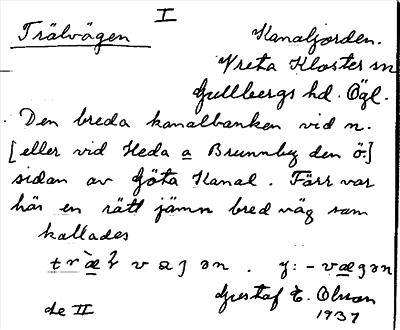 I
Trälvägen
Kanaljorden.
Vreta Kloster sn
Gullbergs hd. Ögl.
Den breda kanalbanken vid n.
[eller vid Heda a Brunnby den ö.]
sidan av Göta Kanal. Förr var
här en rätt jämn bred väg som
kallades
Gustaf E. Olsson
1937
se II